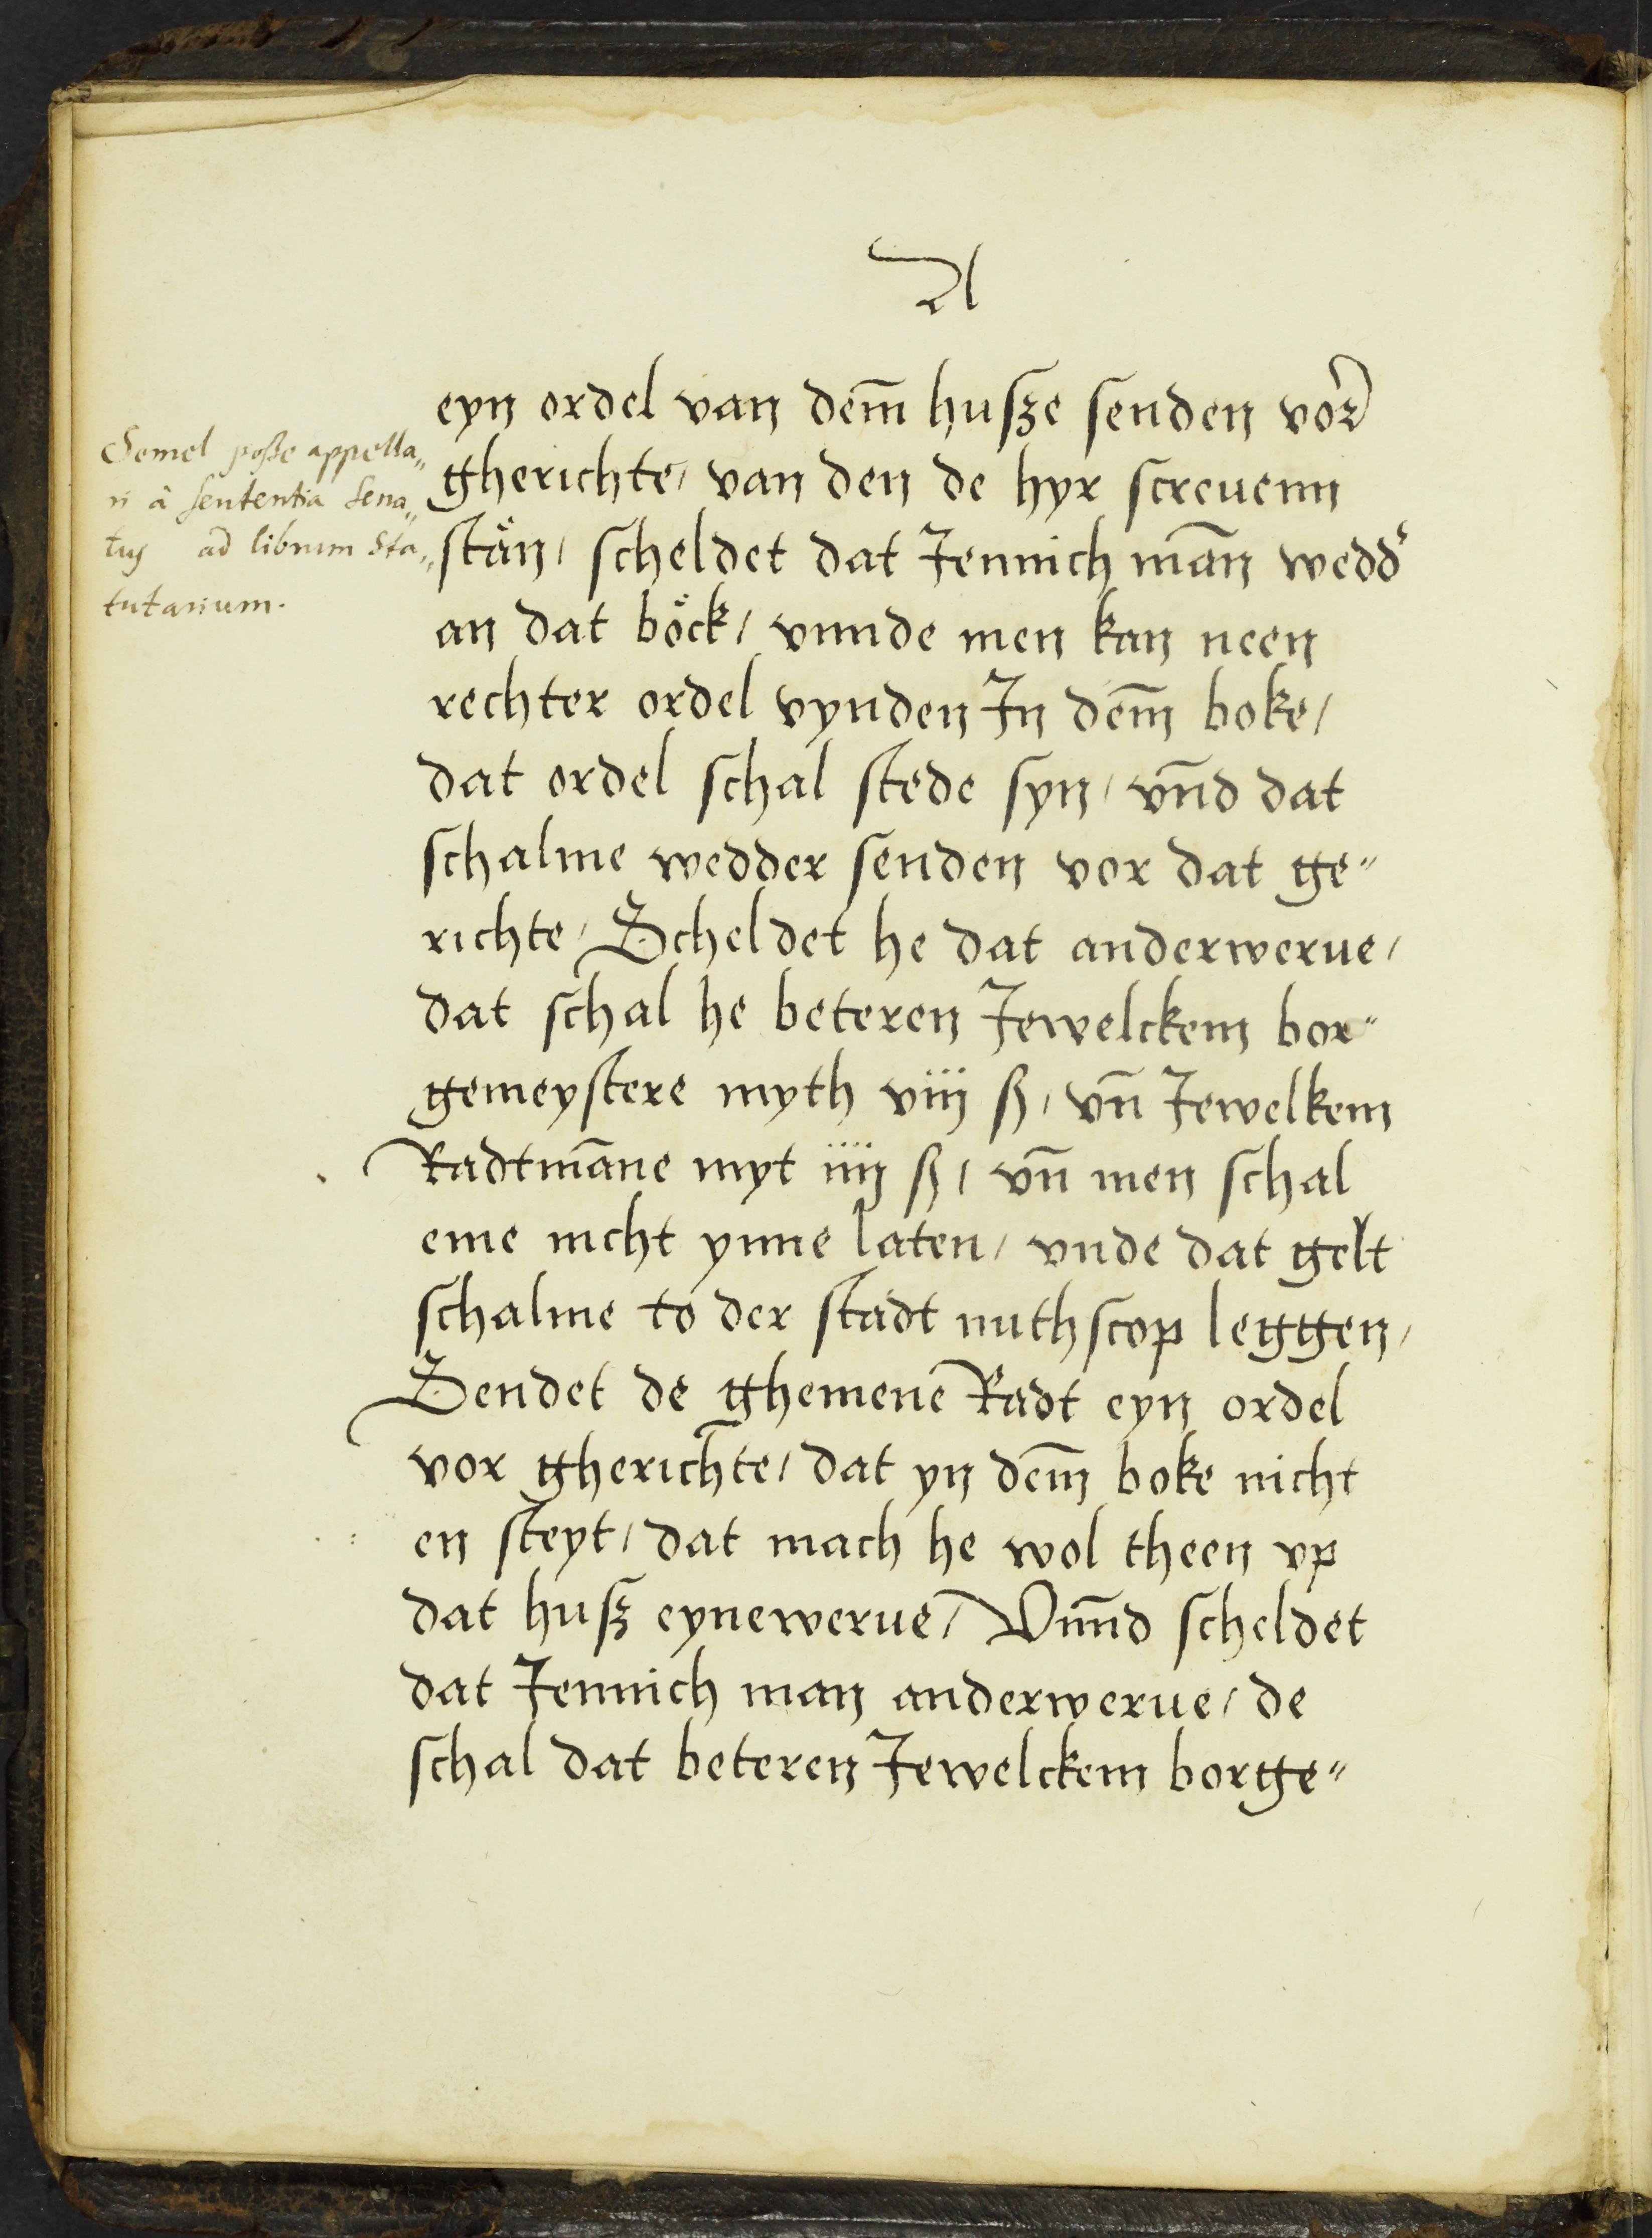 A
eyn ordel van dem̄ husze senden vor
gherichte, van den de hyr screuenn
Semel posse appella„
ri â sententia Sena„
tus ad librum Sta„
tutarium.
stån, scheldet dat Jennich mān wedd'
an dat bo̊ck, vnnde men kan neen
rechter ordel vynden Jn dem̄ boke,
dat ordel schal stede syn, vn̄d dat
schalme wedder senden vor dat ge"
richte, Scheldet he dat anderwerue,
dat schal he beteren Jewelckem bor"
gemeystere myth viij ß, vn̄ Jewelkem
Radtmāne myt iiij ß, vn̄ men schal
eme nicht ynne laten, vnde dat gelt
schalme to der stadt nuthscop leggen,
Sendet de ghemene Radt eyn ordel
vor gherichte, dat yn dem̄ boke nicht
en steyt, dat mach he wol theen vp
dat husz eynewerue, Vnn̄d scheldet
dat Jennich man anderwerue, de
schal dat beteren Jewelckem borge"